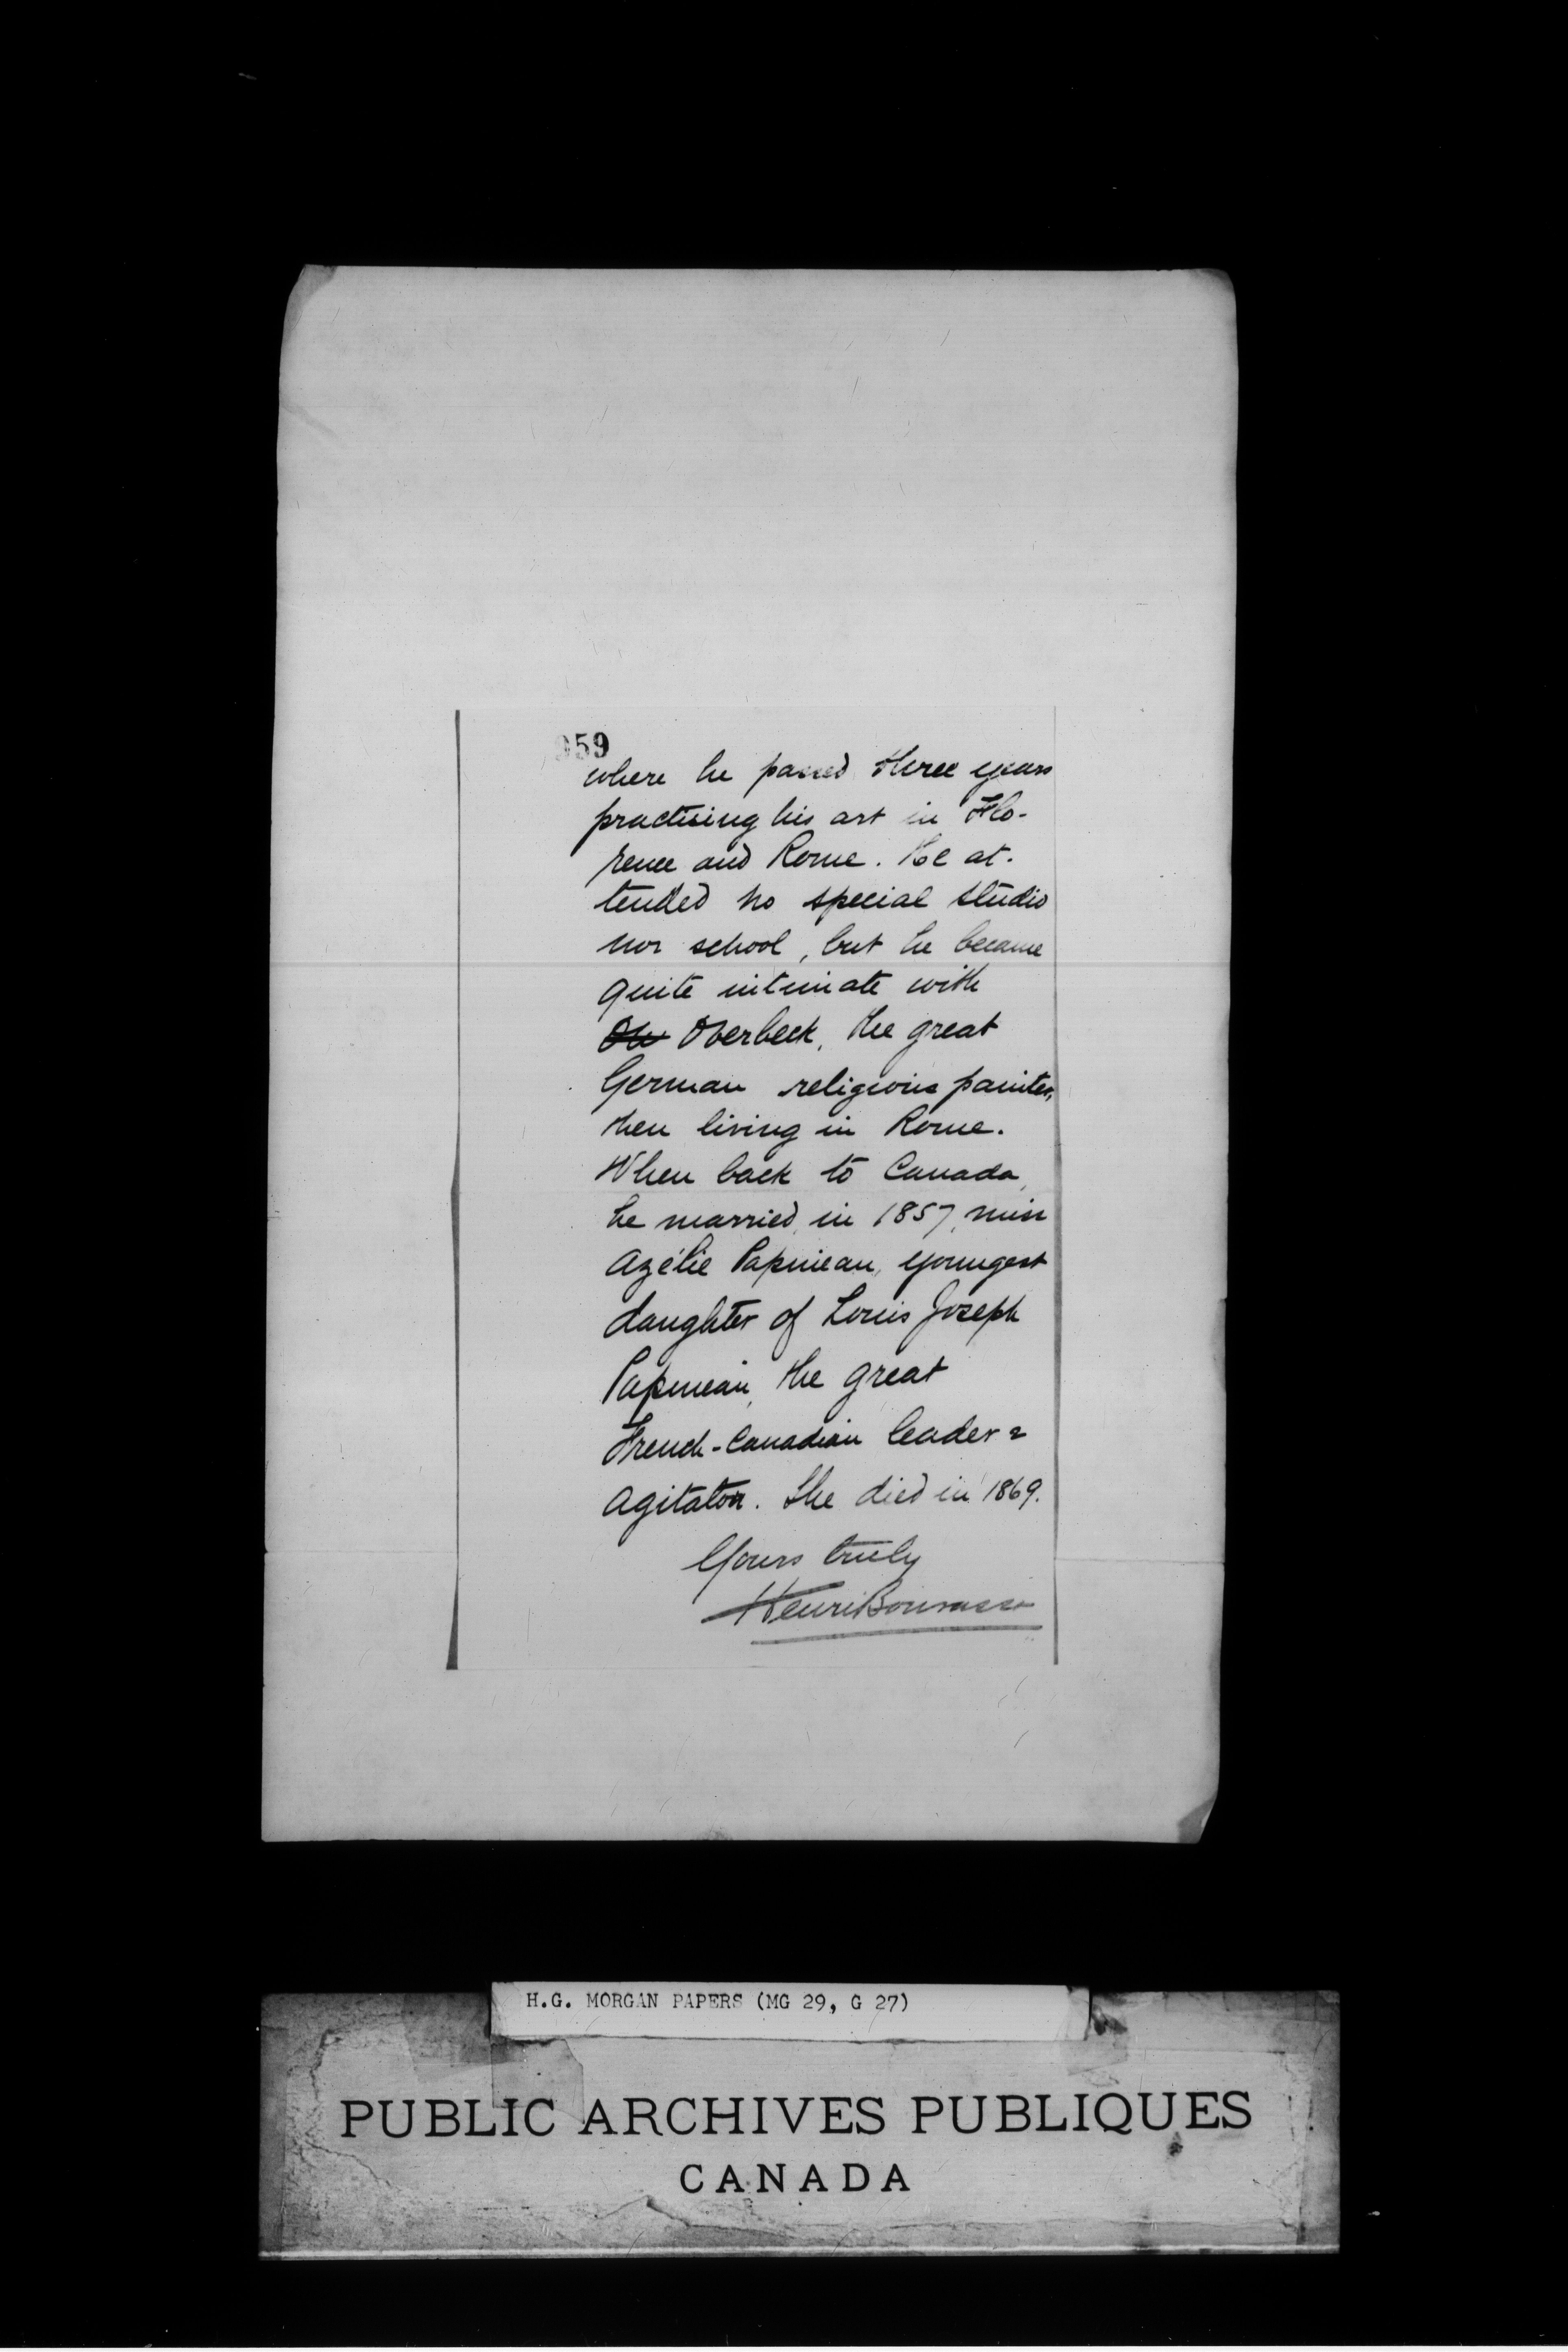 959
where he passed three years
practising his art in Flo-
rence and Rome. He at-
tended no special studio
nor school, but he became
quite intimate with
Ov Overbeck, the great
German religious painter,
then living in Rome.
When back to Canada,
he married, in 1857, miss
Azélie Papineau, youngest
daughter of Louis Joseph
Papineau, the great
French-Canadian leader &
agitator. She died in 1869.
Yours truly
Henri Bourassa
H.G. MORGAN PAPERS (MG 29, G 27)
PUBLIC ARCHIVES PUBLIQUES
CANADA